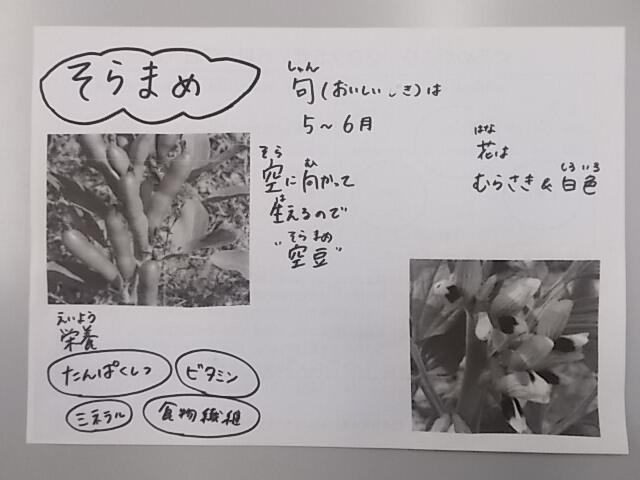 そらまめ
しゅん
旬(おいしいときは
5～6月
そら む
空に向かって
は
生えるので
そらまめ
"空豆"
はな
花は
しろ いろ
むらさき&白色
えいよう
栄養
たんぱくしつ
ビタミン
ミネラル
食物繊維